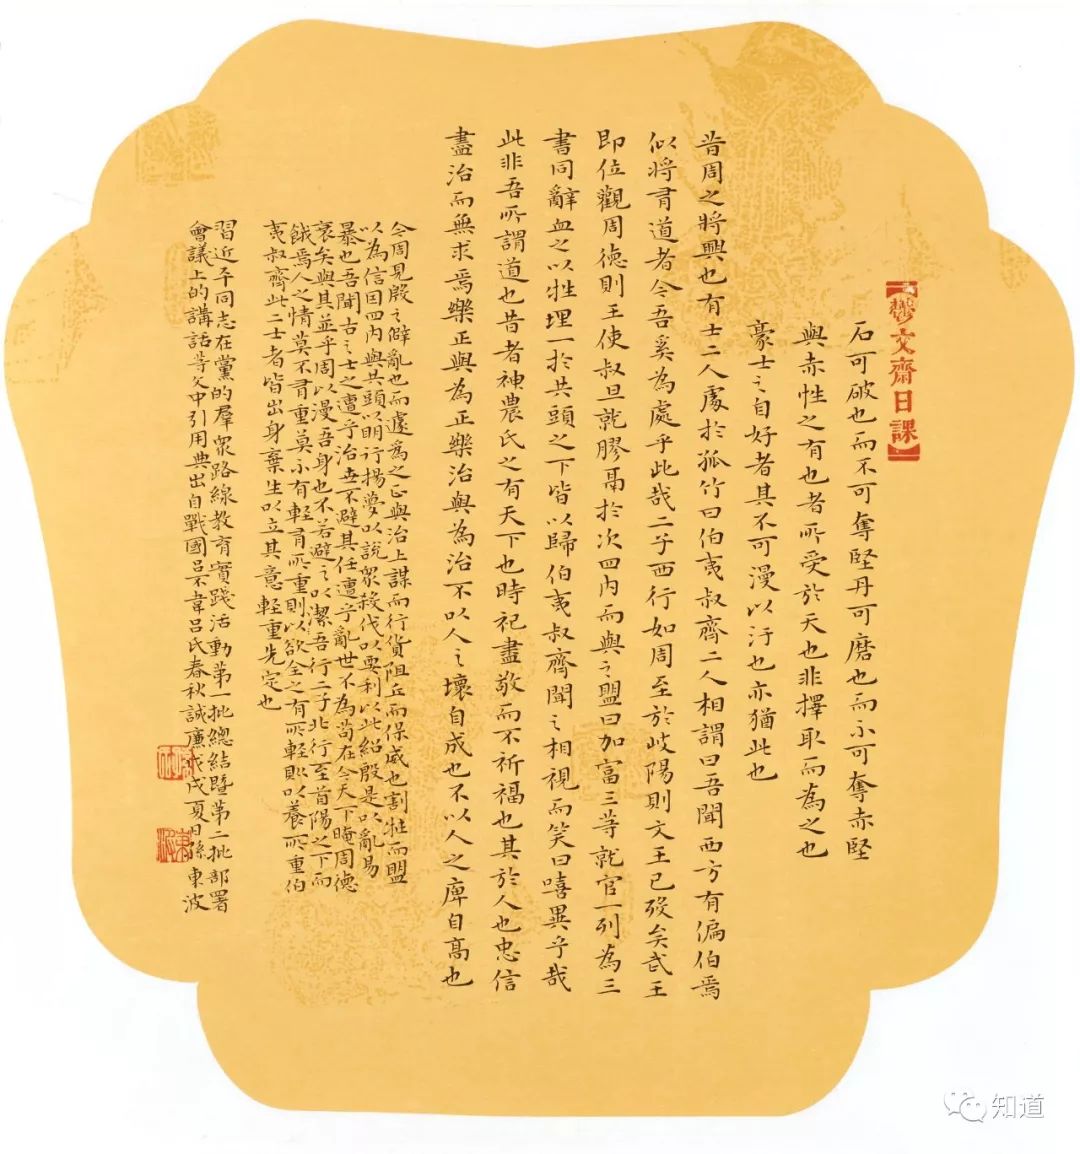 【鬱文齋日課】
石可破也而不可奪堅丹可磨也而不可奪赤堅
與赤性之有也者所受於天也非擇取而為之也
豪士之自好者其不可漫以汙也亦猶此也
昔周之將興也有士二人處於孤竹曰伯夷叔齊二人相謂曰吾聞西方有偏伯焉
似將有道者今吾奚為處乎此哉二子西行如周至於岐陽則文王已歿矣武王
即位觀周德則王使叔旦就膠鬲於次四內而與之盟曰加富三等就官一列為三
書同辭血之以牲埋一於共頭之下皆以歸伯夷叔齊聞之相視而笑曰嘻異乎哉
此非吾所謂道也昔者神農氏之有天下也時祀盡敬而不祈福也其於人也忠信
盡治而無求焉樂正與為正樂治與為治不以人之壞自成也不以人之庳自高也
今周見殷之僻亂也而遽為之正與治上謀而行貨阻丘而保威也割牲而盟
以為信因四內與共頭以明行揚夢以說眾殺伐以要利以此紹殷是以亂易
暴也吾聞古之士遭乎治世不避其任遭乎亂世不為苟在今天下晻周德
衰矣與其並乎周以漫吾身也不若避之以潔吾行二子北行至首陽之下而
餓焉人之情莫不有重莫不有輕有所重則以欲全之有所輕則以養所重伯
夷叔齊此二士者皆出身棄生以立其意輕重先定也
習近平同志在黨的羣眾路線教育實踐活動第一批總結暨第二批部署
會議上的講話等文中引用典出自戰國呂不韋呂氏春秋誠廉戊戌夏日孫東波
知道